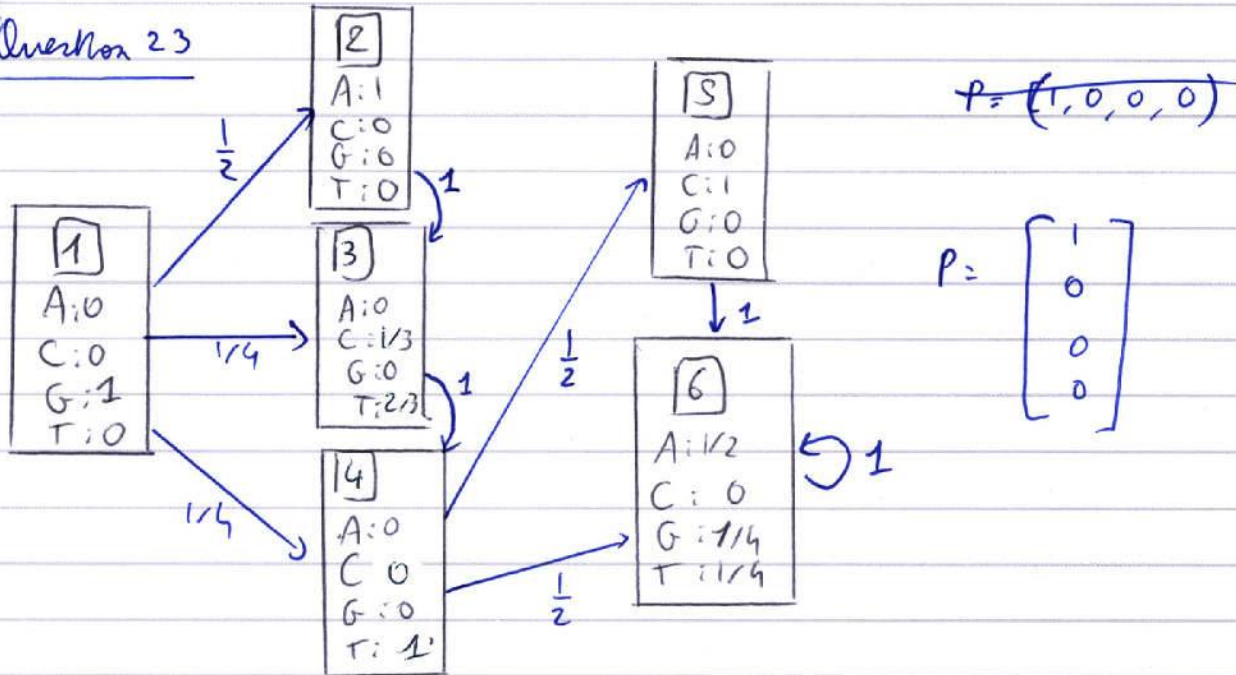 Question 23
1
A:0
C:0
G:1
T:0
1/2
1/4
1/4
2
A:1
C:0
G:0
T:0
1
3
A:0
C:1/3
G:0
T:2/3
1
4
A:0
C 0
G:0
T:1
1/2
1/2
5
A:0
C:1
G:0
T:0
1
6
A:1/2
C: 0
G:1/4
T:1/4
1
P= (1, 0, 0, 0)
P=
1
0
0
0